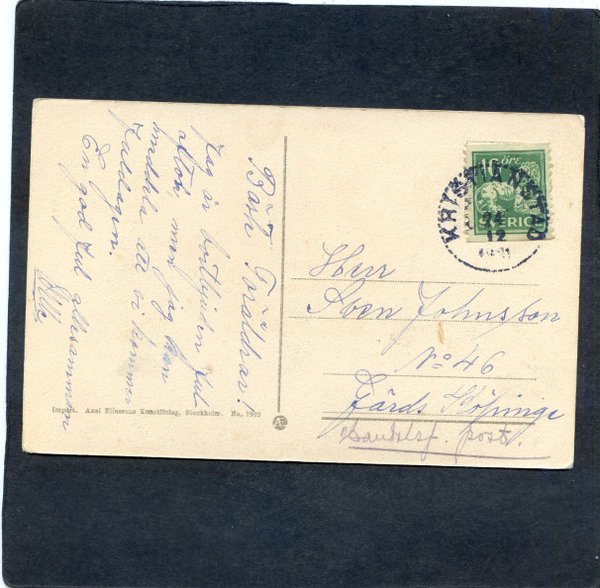 Bästa Föräldrar!
Jag är bortbjuden Jul
afton, men jag kan
meddela att vi kommer
Juldagen.
En god Jul allesamman
Import. Axel Eliassons Konstförlag, Stockholm. No. 1992
AE
10 ÖRE
SVERIGE
KRISTIANSTAD
24
12
Herr
Sven Johnsson
No 46
Färds Köpinge
Landelsf. post.